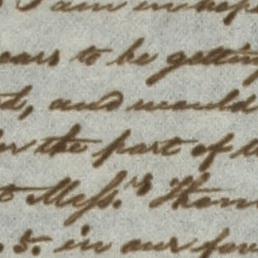 I am in hop
ears to be getting
d, and would
or the part of t
t Mess.rs Thom
. 5. in our fav